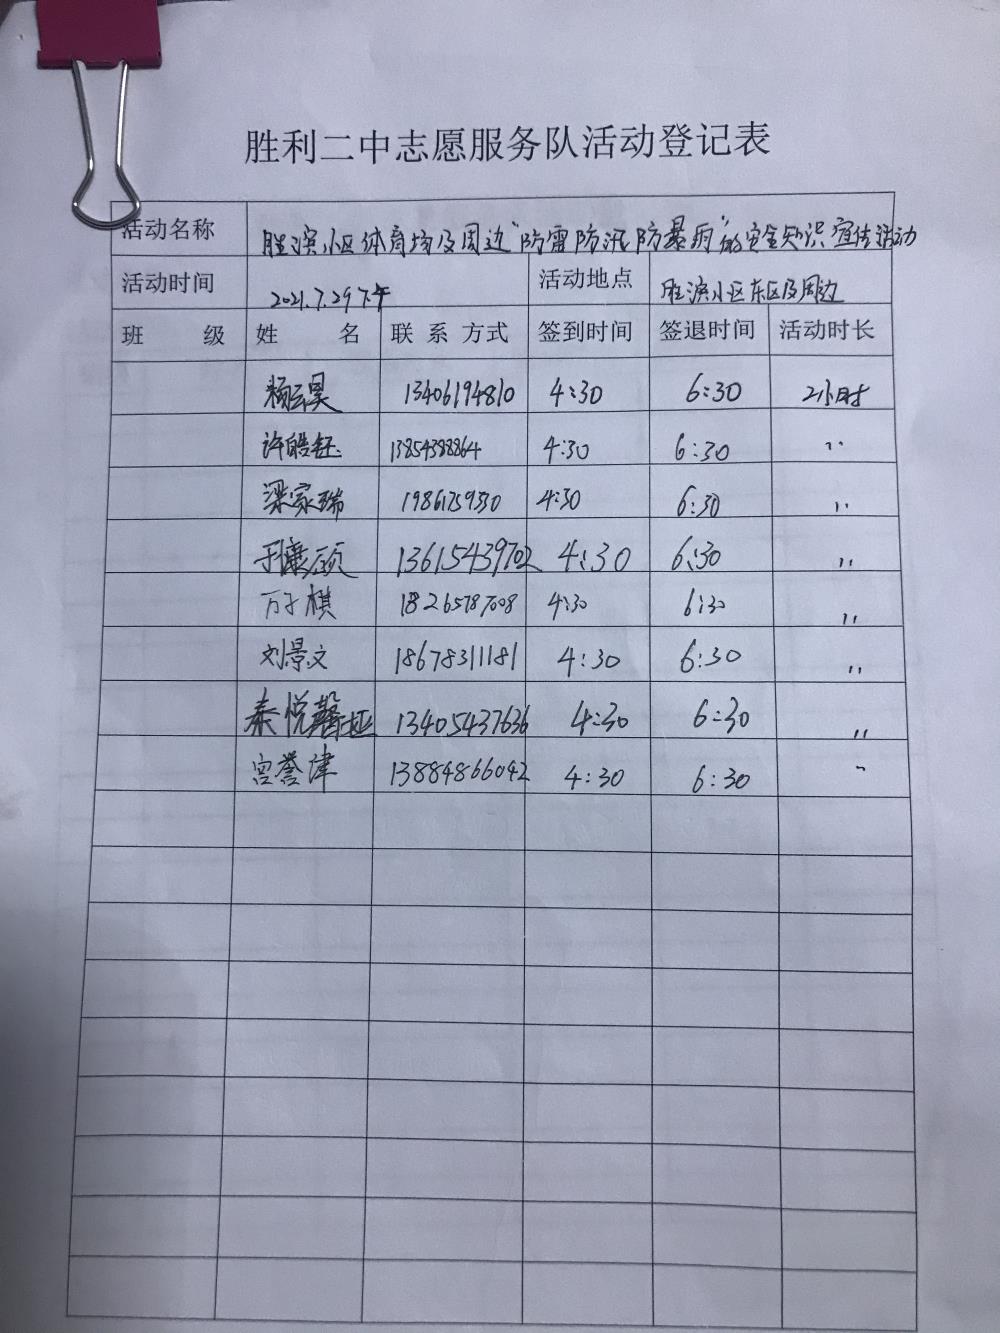 胜利二中志愿服务队活动登记表
活动名称 胜滨小区体育场及周边"防雷防汛防暴雨"的安全知识宣传活动
活动时间 2021.7.29下午 活动地点 胜滨小区东区及周边
班 级 姓 名 联 系 方式 签到时间 签退时间 活动时长
杨云昊 13406194810 4:30 6:30 2小时
许皓钰 13854388864 4:30 6:30 〃
梁家瑞 19861759330 4:30 6:30 〃
于康硕 13615439702 4:30 6:30 〃
万子棋 18265787008 4:30 6:30 〃
刘景文 18678311181 4:30 6:30 〃
秦悦馨 13405437636 4:30 6:30 〃
宫誉津 13884866042 4:30 6:30 〃